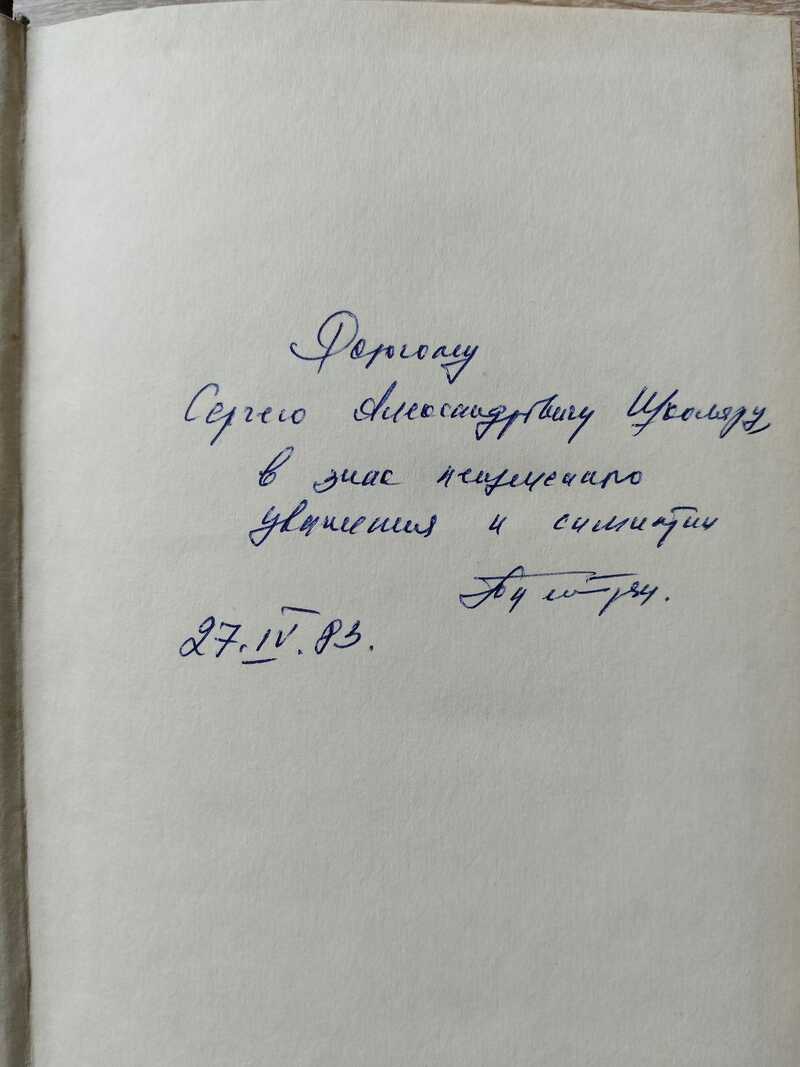 Дорогому
Сергею Александровичу Школяру
в знак неизменного
уважения и симпатии
27.IV.83.